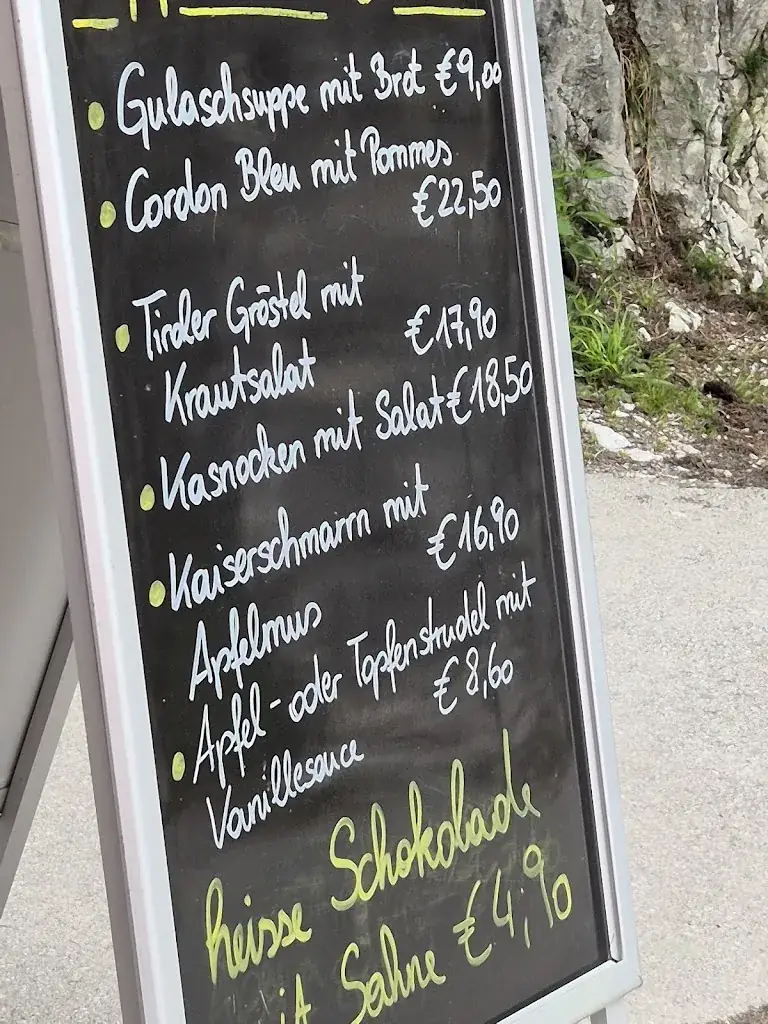 Gulaschsuppe mit Brot €9,00
Cordon Bleu mit Pommes
€22,50
Tiroler Gröstel mit
Krautsalat €17,90
Kasnocken mit Salat €18,50
Kaiserschmarrn mit
Apfelmus €16,90
Apfel- oder Topfenstrudel mit
Vanillesauce €8,60
heisse Schokolade
mit Sahne €4,90